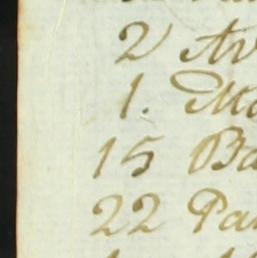 2 Av
1. Mo
15 Ba
22 Pan